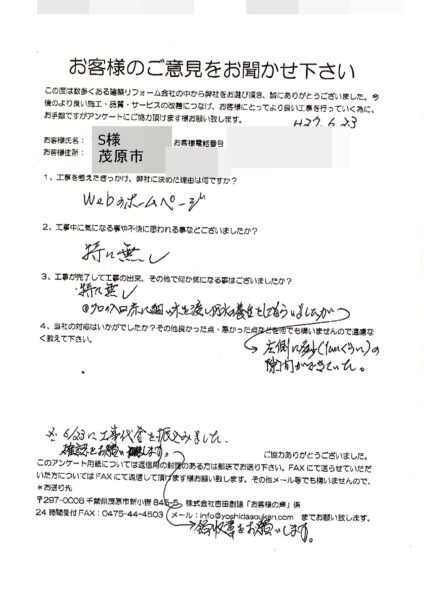 お客様のご意見をお聞かせ下さい
この度は数多くある建築リフォーム会社の中から弊社をお選び頂き、誠にありがとうございました。今
後のより良い施工・品質・サービスの改善につなげ、お客様にとってより良い工事を行っていく為に、
お手数ですがアンケートにご協力頂けます様お願い致します。
H27.6.23
お客様氏名: S様 お客様電話番号
お客様住所: 茂原市
1、工事を考えたきっかけ、弊社に決めた理由は何ですか?
Webのホームページ
2、工事中に気になる事や不快に思われる事などございましたか?
特に無し
3、工事が完了して工事の出来、その他で何か気になる事はございましたか?
特に無し
4、当社の対応はいかがでしたか?その他良かった点・悪かった点などを何でも構いませんので遠慮な
く教えて下さい。
左側に
隙間ができていた。
※6/23に工事代金を振込みました
確認をお願い致します。
ご協力ありがとうございました。
このアンケート用紙については返信用の封筒のある方は郵送でお送り下さい。FAXにて送らせていただ
いた方についてはFAXにて返信して頂けます様お願い致します。その他メール等でも構いませんので、
*お送り先
〒297-0006 千葉県茂原市新小轡 845-5 株式会社吉田創建「お客様の声」係
24 時間受付 FAX:0475-44-4503 メール:info@yoshidasouken.com までお願い致します。
領収書をお願いします。